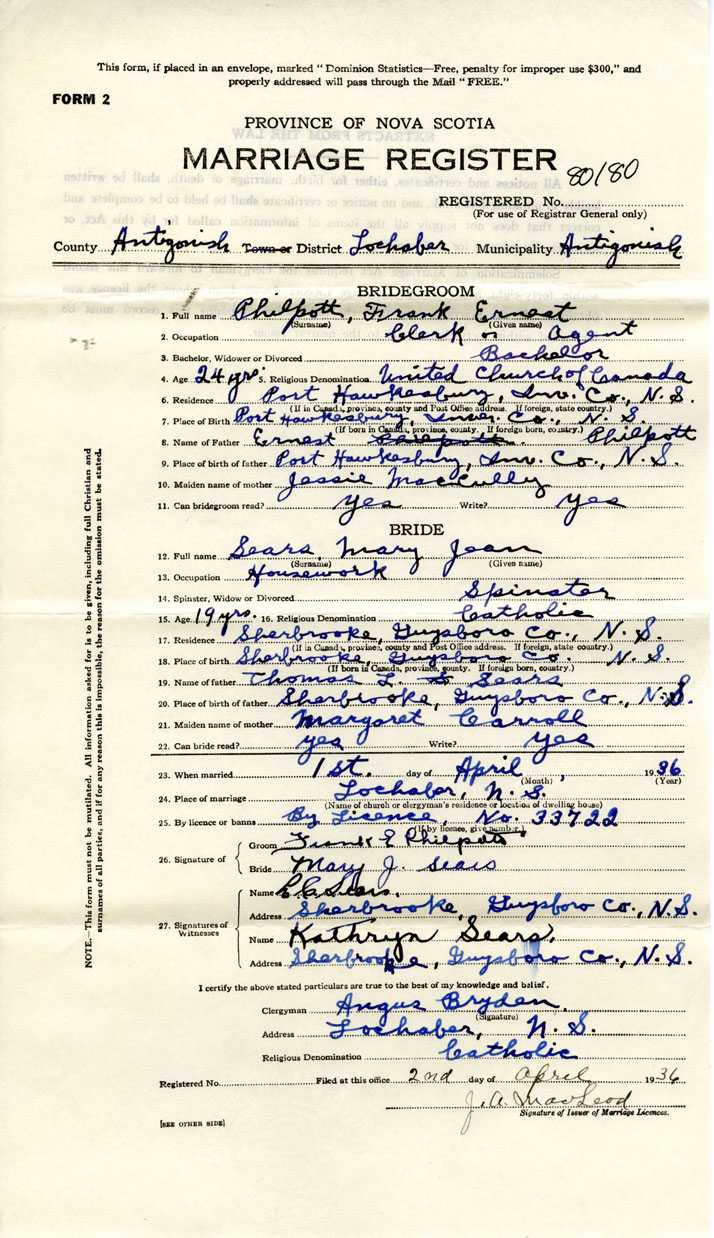 This form, if placed in an envelope, marked "Dominion Statistics—Free, penalty for improper use $300," and
properly addressed will pass through the Mail "FREE."
FORM 2
PROVINCE OF NOVA SCOTIA
MARRIAGE REGISTER
80/80
REGISTERED No.
(For use of Registrar General only)
County Antigonish Town or District Lochaber Municipality Antigonish
BRIDEGROOM
1. Full name Philpott, Frank Ernest
(Surname) (Given name)
2. Occupation Clerk or Agent
3. Bachelor, Widower or Divorced Bachellor
4. Age 24 yrs. 5. Religious Denomination United Church of Canada
6. Residence Port Hawkesbury, Inv. Co., N. S.
(If in Canada, province, county and Post Office address. If foreign, state country.)
7. Place of Birth Port Hawkesbury, Inver. Co., N. S.
(If born in Canada, province, county. If foreign born, country.)
8. Name of Father Ernest Philpott Philpott
9. Place of birth of father Port Hawkesbury, Inv. Co., N. S.
10. Maiden name of mother Jessie MacCully
11. Can bridegroom read? yes Write? yes
BRIDE
12. Full name Sears, Mary Jean
(Surname) (Given name)
13. Occupation Housework
14. Spinster, Widow or Divorced Spinster
15. Age 19 yrs. 16. Religious Denomination Catholic
17. Residence Sherbrooke, Guysboro Co., N. S.
(If in Canada, province, county and Post Office address. If foreign, state country.)
18. Place of birth Sherbrooke, Guysboro Co. N. S.
(If born in Canada, province, county. If foreign born, country.)
19. Name of father Thomas L. Sears
20. Place of birth of father Sherbrooke, Guysboro Co., N. S.
21. Maiden name of mother Margaret Carroll
22. Can bride read? yes Write? yes
23. When married 1st. day of April, 1936
(Month) (Year)
24. Place of marriage Lochaber, N. S.
(Name of church or clergyman's residence or location of dwelling house)
25. By licence or banns By Licence, No. 33722
(If by licence, give number)
26. Signature of
Groom Frank E Philpott
Bride Mary J. Sears
27. Signatures of Witnesses
Name Sears.
Address Sherbrooke, Guysboro Co., N. S.
Name Kathryn Sears.
Address Sherbrooke, Guysboro Co., N. S.
I certify the above stated particulars are true to the best of my knowledge and belief.
Clergyman Angus Bryden,
(Signature)
Address Lochaber, N. S.
Religious Denomination Catholic
Registered No. Filed at this office 2nd day of April 1936
J. A. MacLeod
Signature of Issuer of Marriage Licences.
[SEE OTHER SIDE]
NOTE.—This form must not be mutilated. All information asked for is to be given, including full Christian and
surnames of all parties, and if for any reason this is impossible, the reason for the omission must be stated.